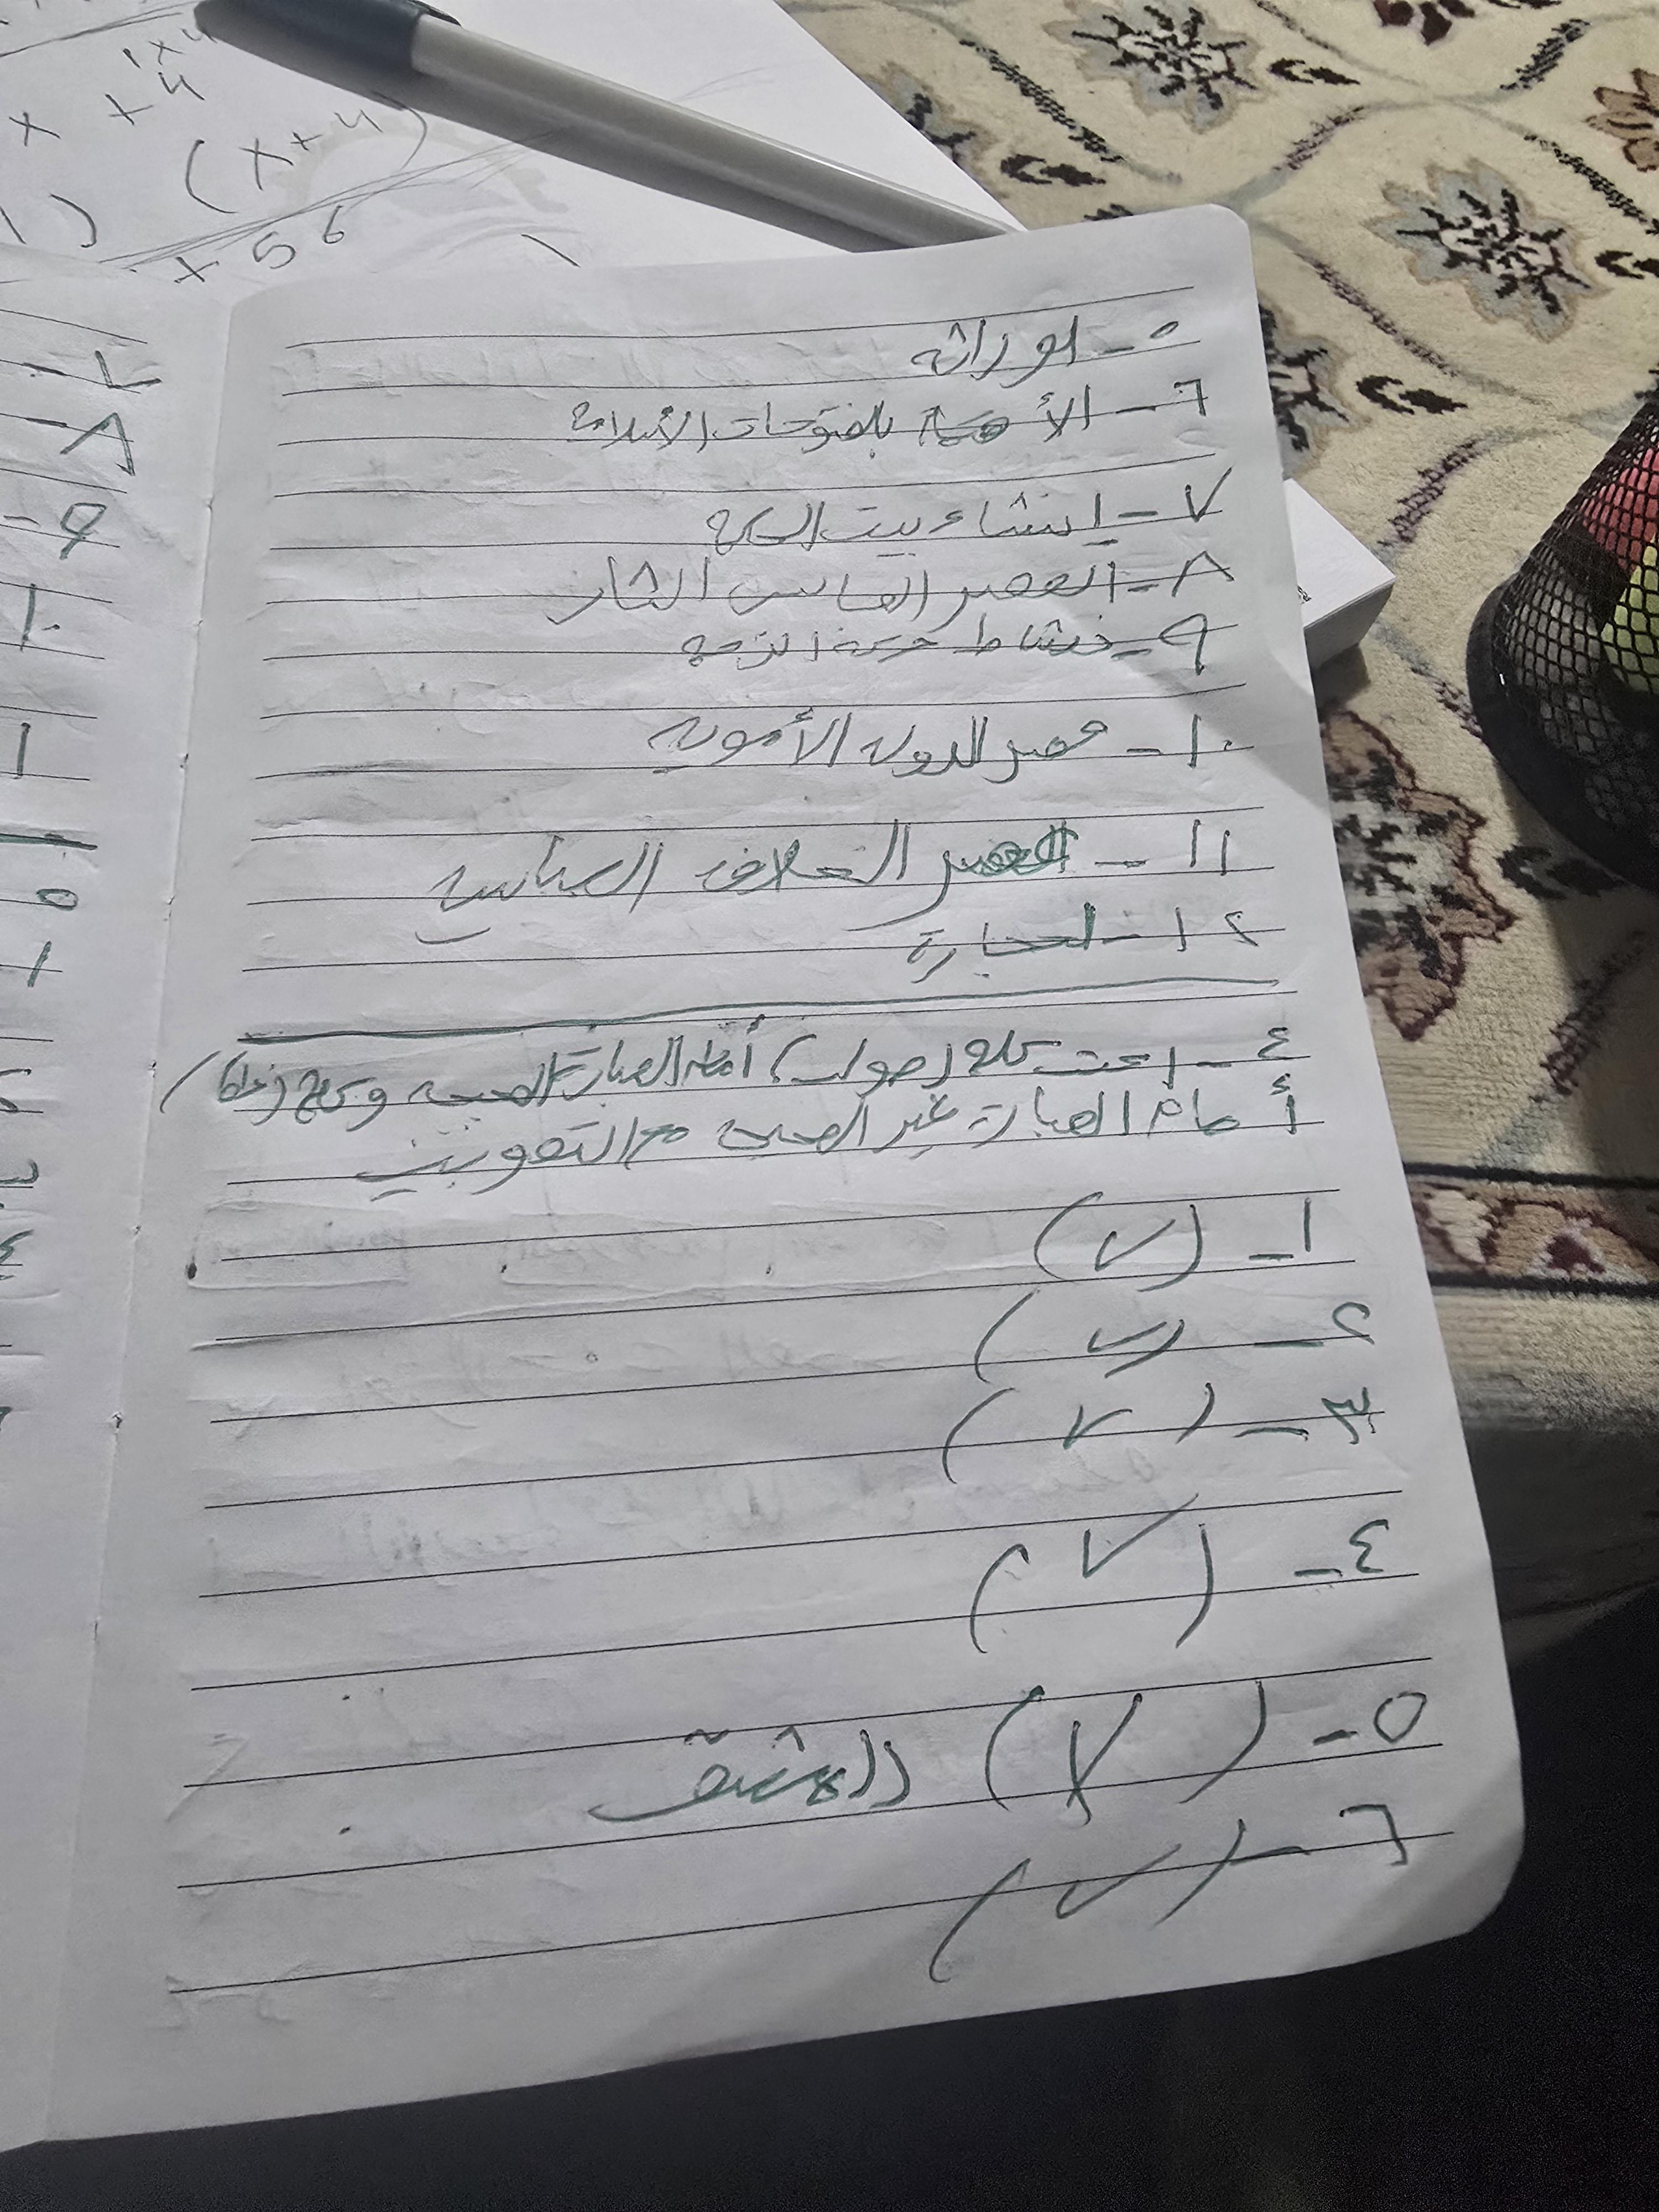 1x4
x + 4
(x+4)
1)
+ 56
٥ - لوراثه
٦ - الأهتمام بلفتوحات الأسلامية
٧ - إنشاء بيت الحكمة
٨ - العصر العباسي الثاني
٩ - نشاط حركة الترجمة
١٠ - عصر الدولة الأموية
١١ - العصر الخلافة العباسية
١٢ - لتجارة
٤ - اكتب كلمة (صواب) أمام العبارة الصحيحة وكلمة (خطأ)
أمام العبارة غير الصحيحة مع التصويب
١ - (✓)
٢ - (✓)
٣ - (✓)
٤ - (✓)
٥ - (✓)
٦ - (✓)
٧ -
٨ -
٩ -
١٠
١
٥